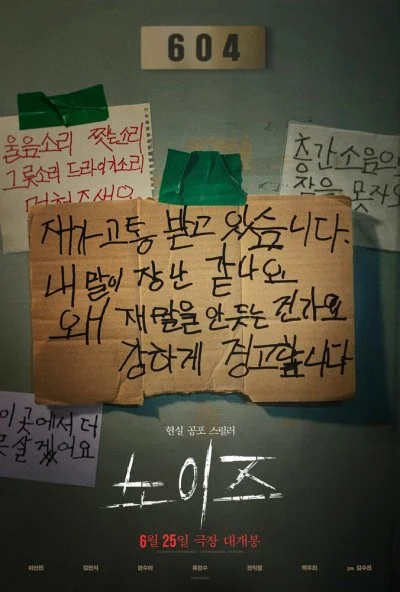 604
울음소리 찢는소리
그릇소리 드라이기소리
멈춰주세요
층간소음으
잠을 못자요
재가고통 받고 있습니다.
내 말이 장난 같나요.
왜 재말을 안듣는 건가요
강하게 경고합니다
이 곳에서 더
못살겠어요
현실 공포 스릴러
노이즈
6월 25일 극장 대개봉
이선빈 김민석 한수아 류경수 전익령 백주희 감독 김수진